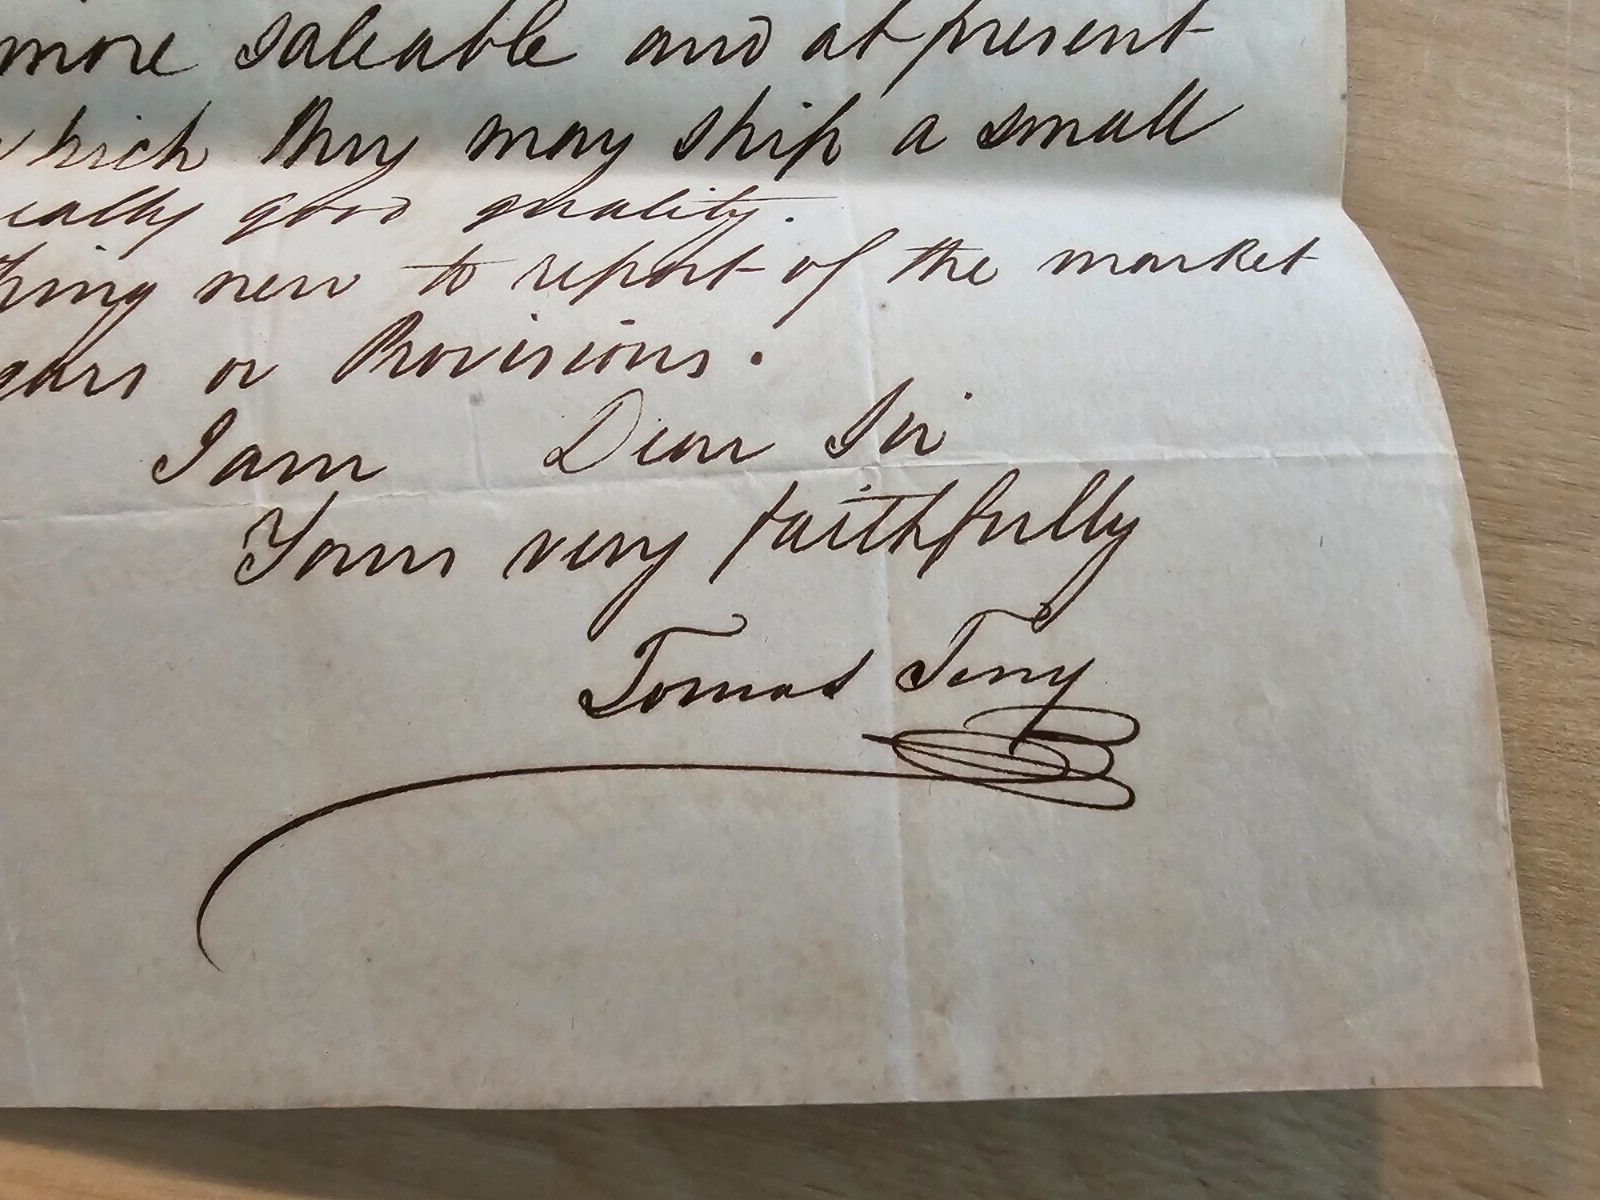 more saleable and at present
which they may ship a small
really good quality.
thing new to report of the market
gars or Provisions.
I am Dear Sir
Yours very faithfully
Tomas Terry